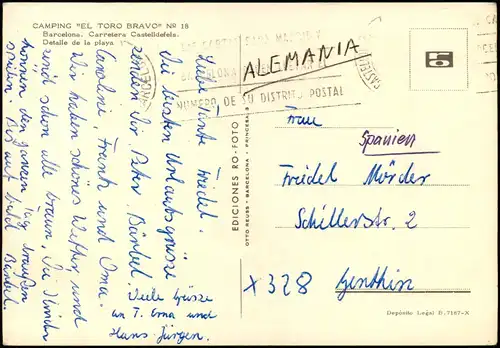 CAMPING "EL TORO BRAVO" Nº 18
Barcelona. Carretera Castelldefels.
Detalle de la playa
Liebe Tante Friedel.
Die besten Urlaubsgrüsse
senden Dir Peter, Bärbel
Caroline, Frank und Oma.
Wir haben schönes Wetter und
sind schon alle braun. Die Kinder
können den ganzen Tag draußen
spielen. Bis auf bald
Bärbel.
Viele Grüsse
an T. Erna und
Hans-Jürgen.
EDICIONES RO-FOTO
OTTO REUSS - BARCELONA - PRINCESA, 8
BARCELONA
NUMERO DE SU DISTRITO POSTAL
ALEMANIA
Frau
Spanien
Friedel Mörder
Schillerstr. 2
X 328 Genthin
Depósito Legal B. 7167-X